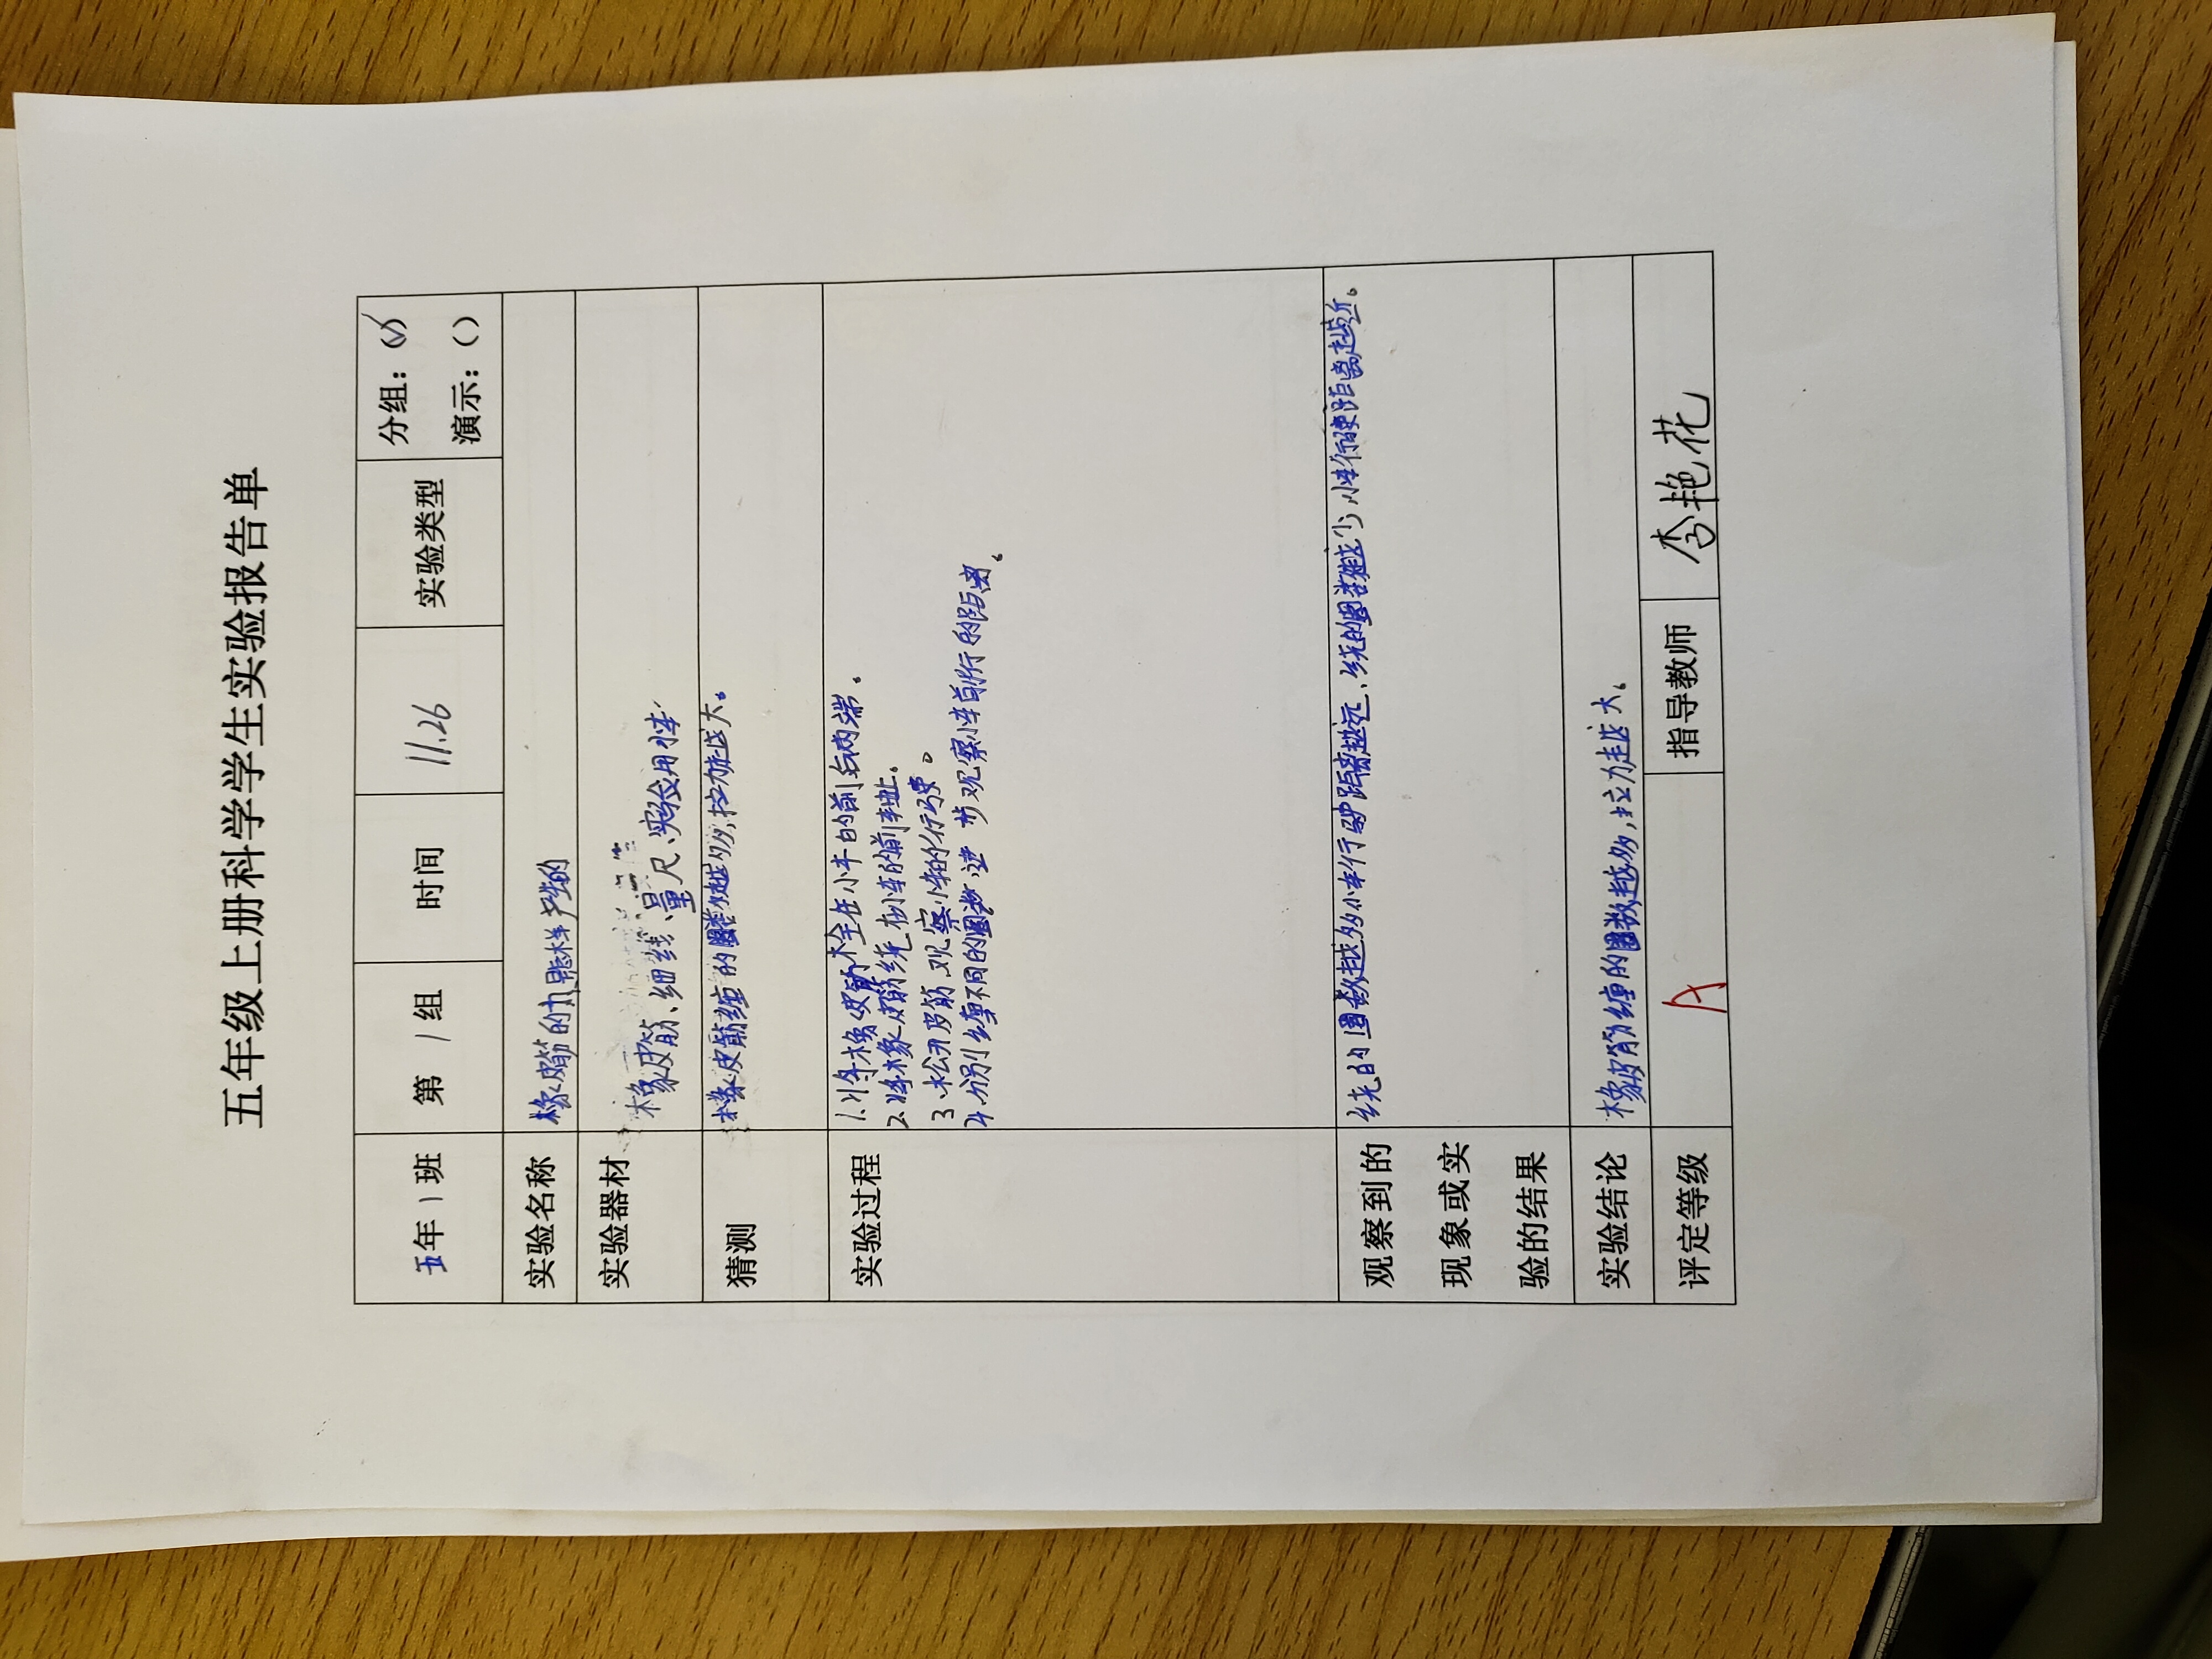 五年级上册科学学生实验报告单
五年 1 班 第 1 组 时间 11.26 实验类型 分组：(√)
演示：( )
实验名称 橡皮筋的力是怎样产生的
实验器材 橡皮筋、细线、量尺、实验用小车
猜测 橡皮筋缠的圈数越多,拉力越大。
实验过程 1.将橡皮筋栓在小车的前后两端。
2.将橡皮筋绕在小车的前车轴。
3.松开皮筋,观察小车的行驶。
4.分别缠不同的圈数,进一步观察小车前行的距离。
观察到的 绕的圈数越多小车行驶距离越远、绕的圈数越少,小车行驶距离越近。
现象或实
验的结果
实验结论 橡皮筋缠的圈数越多,拉力越大。
评定等级 A 指导教师 李艳花